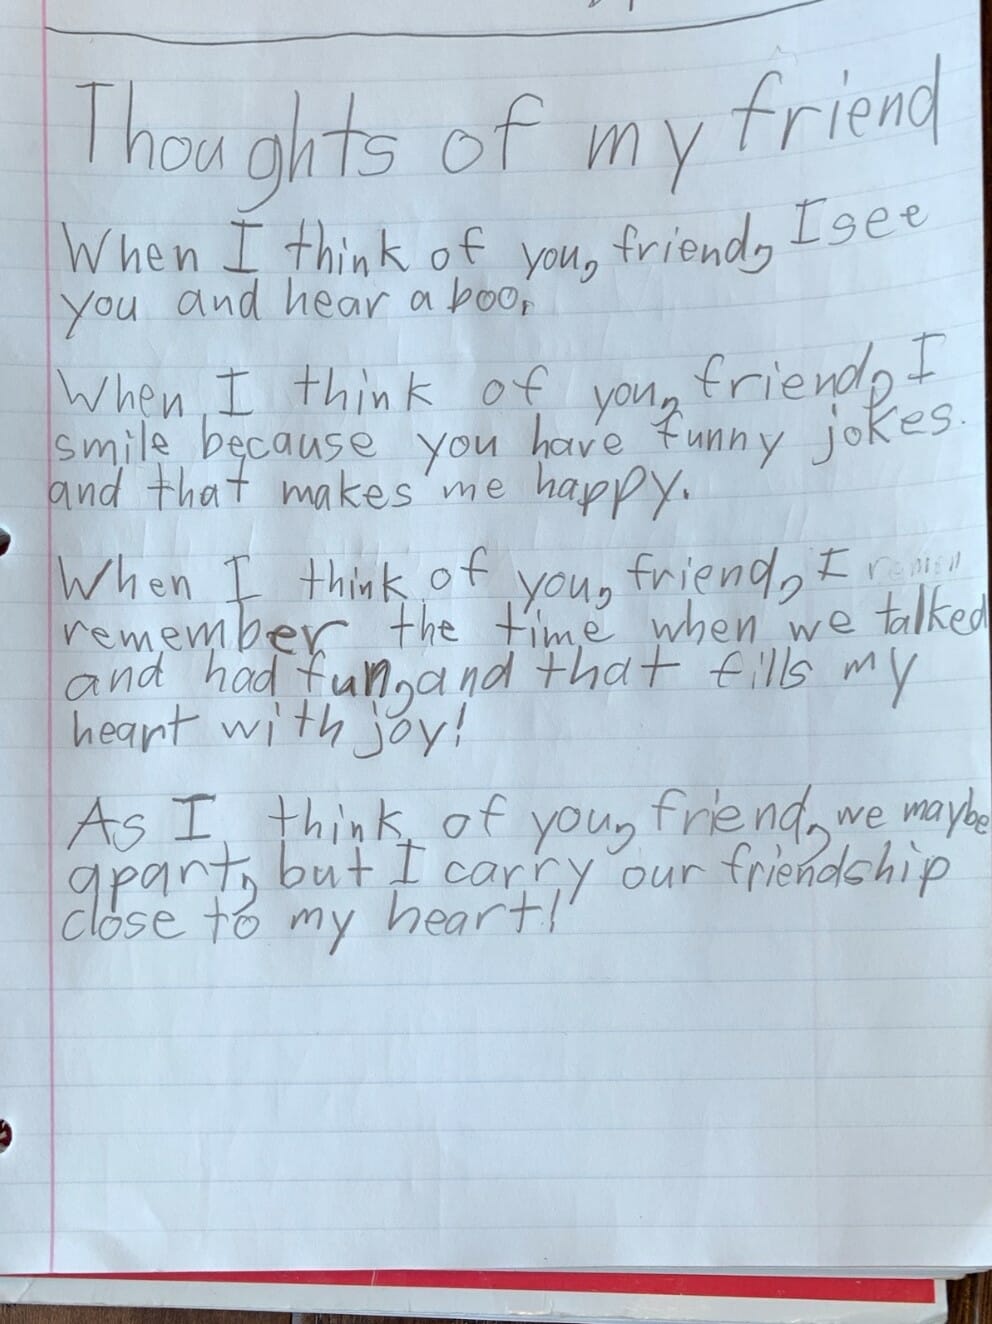 Thoughts of my friend
When I think of you, friend, I see
you and hear a boo.
When I think of you, friend, I
smile because you have funny jokes.
and that makes me happy.
When I think of you, friend, I
remember the time when we talked
and had fun, and that fills my
heart with joy!
As I think of you, friend, we maybe
apart, but I carry our friendship
close to my heart!